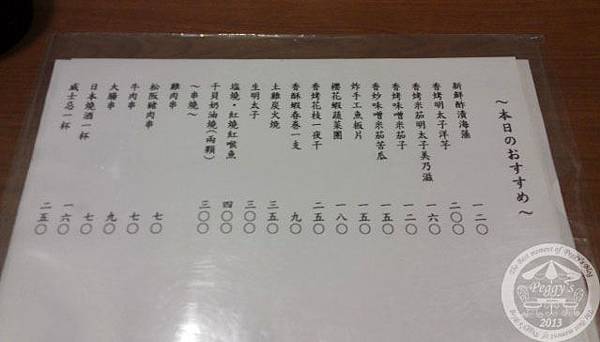 ～本日のおすすめ～
新鮮酢漬海藻 一二〇
香烤明太子洋芋 二〇〇
香烤米茄明太子美乃滋 一六〇
香烤味噌米茄子 一二〇
香炒味噌米茄苦瓜 一五〇
炸手工魚板片 一五〇
櫻花蝦蔬菜園 一八〇
香烤花枝一夜干 二五〇
香酥蝦春卷一支 九〇
土雞炭火燒 三五〇
生明太子 三〇〇
塩燒・紅燒紅喉魚 四〇〇
干貝奶油燒(兩顆) 三〇〇
～串燒～
雞肉串 七〇
松阪豬肉串 七〇
牛肉串 九〇
大腸串 七〇
日本燒酒一杯 一六〇
威士忌一杯 二五〇
The Best moment of Peggy's Blog
Peggy's
2013